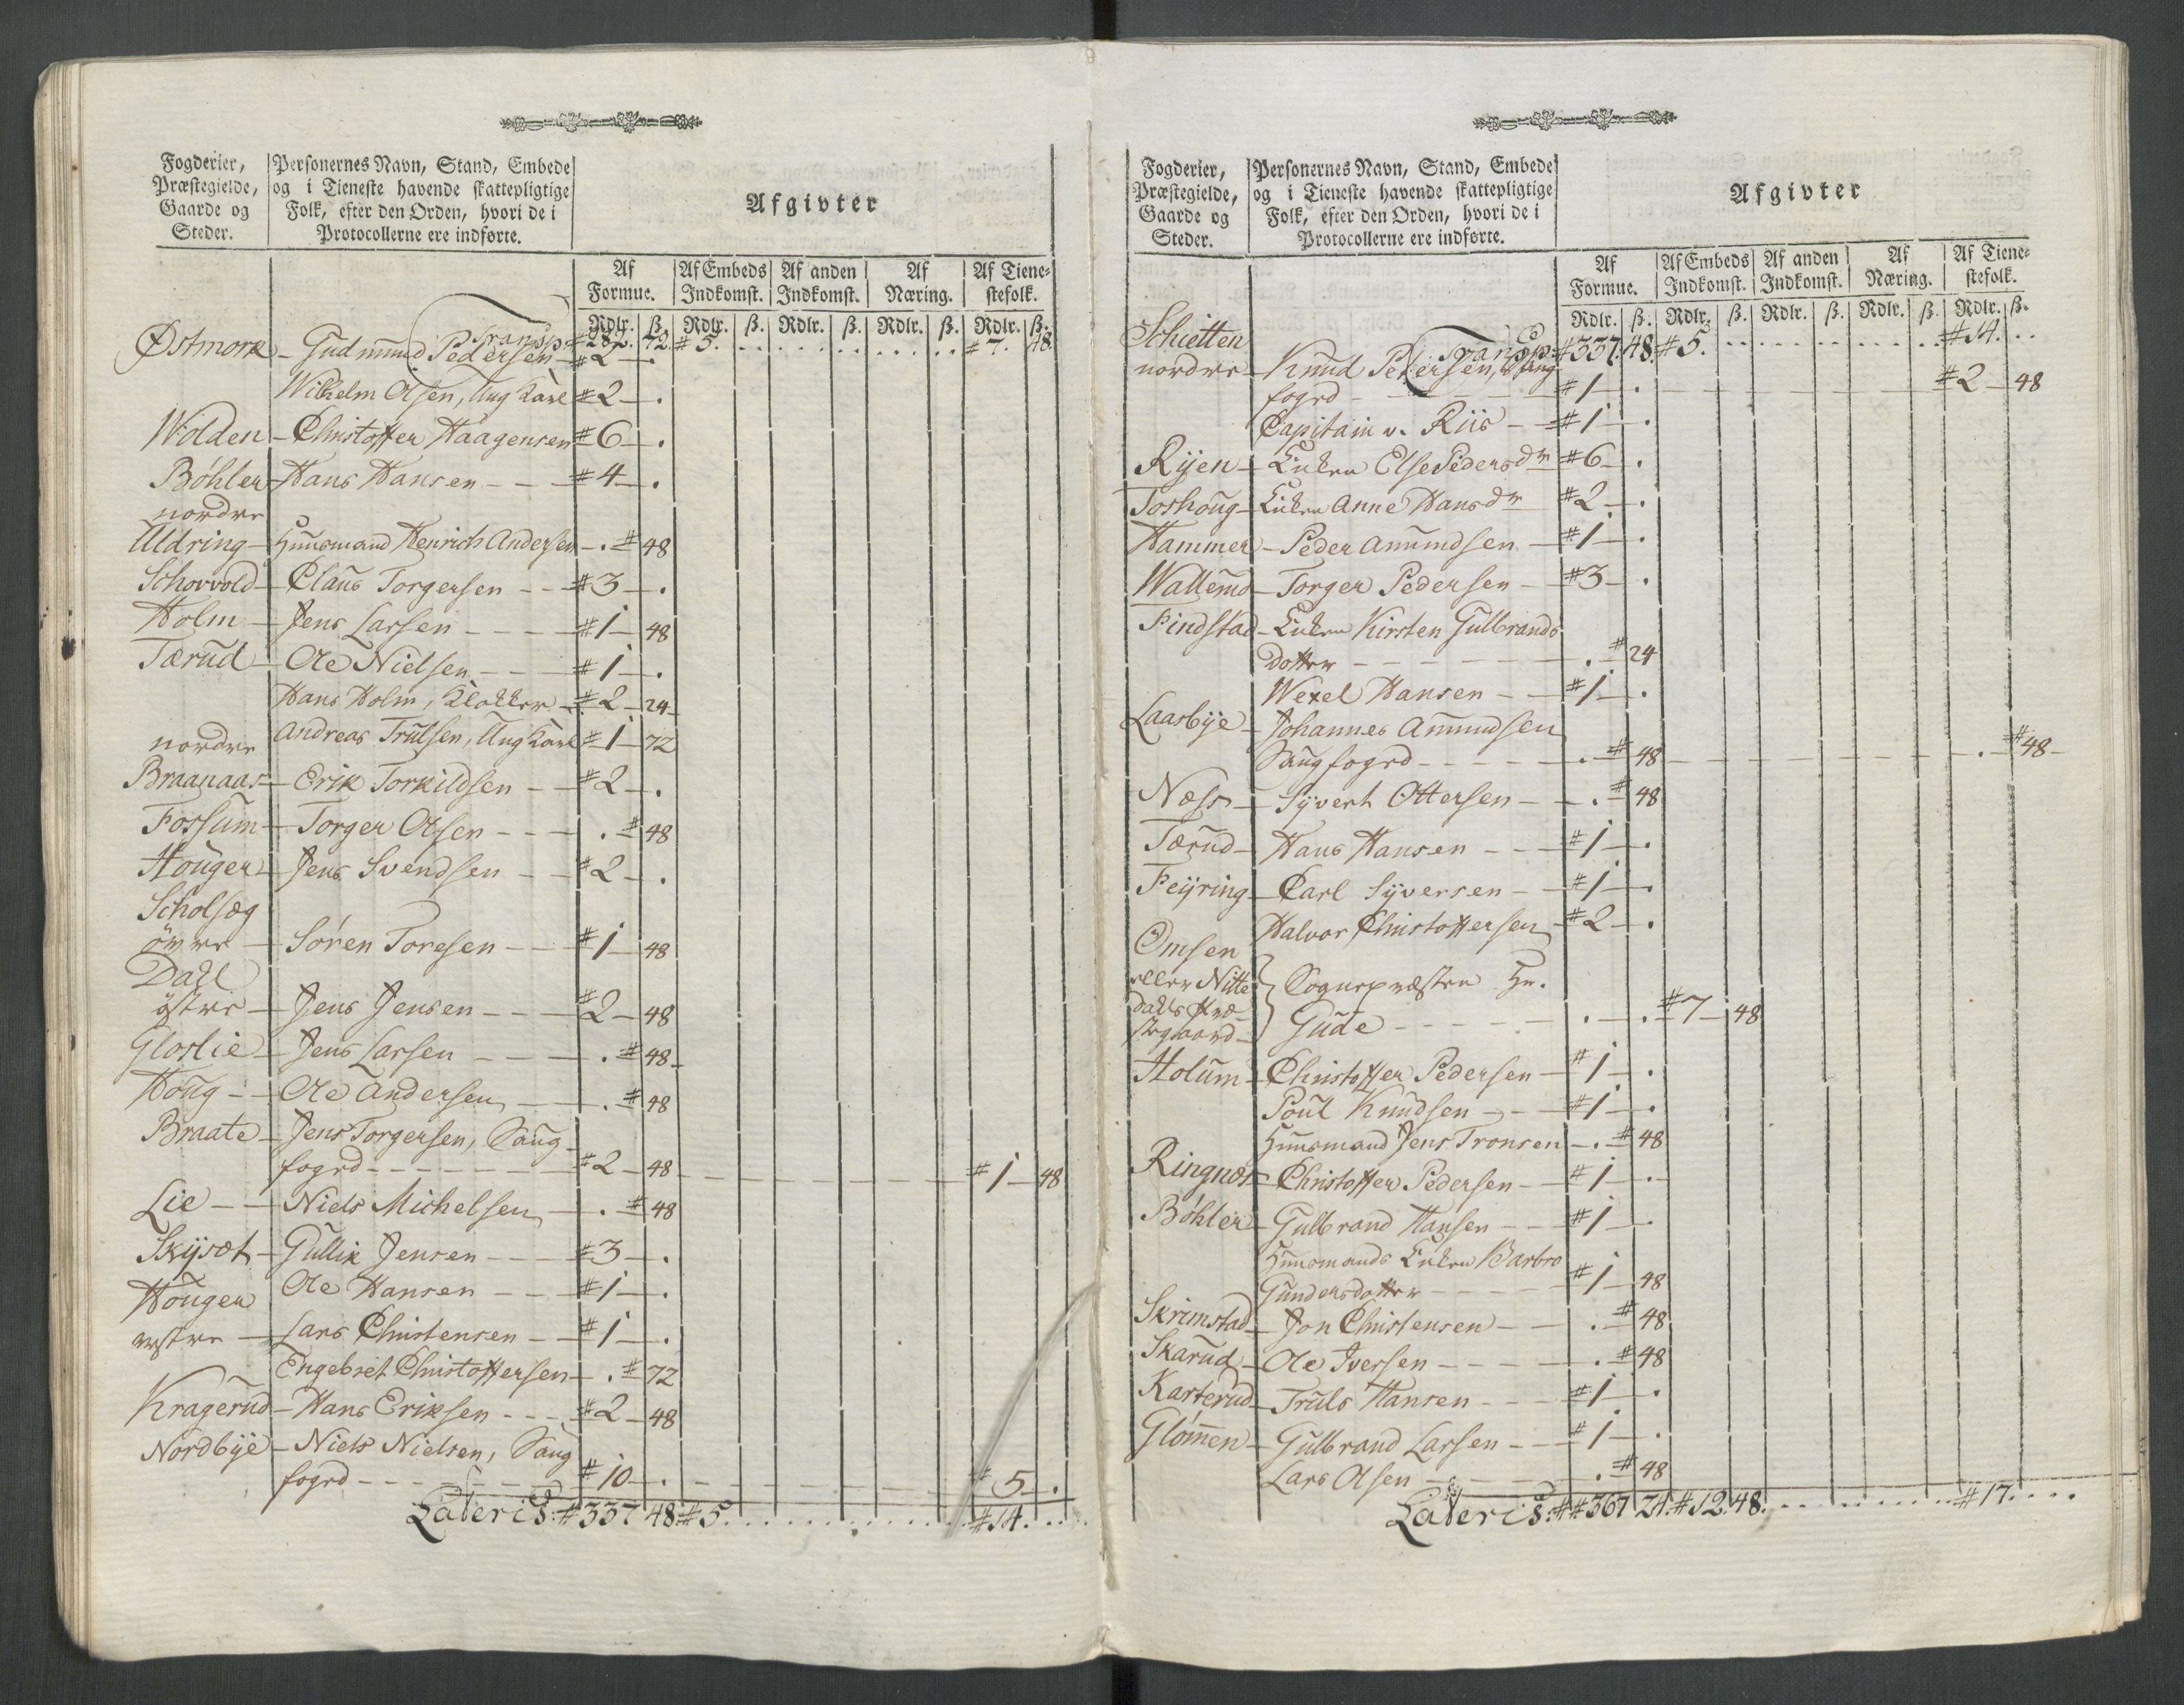 Fogderier,
Præstegielde,
Gaarde og
Steder.
Personernes Navn, Stand, Embede
og i Tieneste havende skattepligtige
Folk, efter den Orden, hvori de i
Protocollerne ere indførte.
Afgivter
Af
Formue.
Af Embeds
Indkomst.
Af anden
Indkomst.
Af
Næring.
Af Tiene-
stefolk.
Rdlr. ß. Rdlr. ß. Rdlr. ß. Rdlr. ß. Rdlr. ß.
Transp: # 282. 72. # 5. . . . . . . . # 7. 48.
Østmork - Gudmund Pedersen - # 2 - .
Wilhelm Olsen, Ung Karl # 2 - .
Wolden - Christoffer Haagensen # 6 - .
Bøhler - Hans Hansen - - # 4 - .
nordre
Uldring - Huusmand Henrich Andersen - . # 48
Schovvold - Claus Torgersen - - # 3 - .
Holm - Jens Larsen - - - # 1 - 48
Tærud - Ole Nielsen - - # 1 - .
Hans Holm, Klokker - # 2 - 24
nordre Andreas Trulsen, Ung Karl # 1 - 72
Braanaas - Erik Torkildsen - # 2 - .
Fossum - Torger Olsen - - - . # 48
Houger - Jens Svendsen - - # 2 - .
Scholseg
övre - Sören Toresen - - # 1 - 48
Dahl
östre - Jens Jensen - - - # 2 - 48
Gloslie - Jens Larsen - - - . # 48
Houg - - Ole Andersen - - . # 48
Braate - Jens Torgersen, Saug-
fogd - - - - - - # 2 - 48 - - - - - - # 1 - 48
Lie - - Niels Michelsen - . # 48
Skysæt - Gullik Jensen - - # 3 - .
Houger Ole Hansen - - # 1 - .
vestre - Lars Christensen - # 1 - .
Engebret Christoffersen - . # 72
Kragerud - Hans Eriksen - - - # 2 - 48
Nordbye - Niels Nielsen, Saug
fogd - - - - - - # 10 - . - - - - - # 5 - .
Lateris: # 337 48. # 5. . . . . . . . # 14. . .
Fogderier,
Præstegielde,
Gaarde og
Steder.
Personernes Navn, Stand, Embede
og i Tieneste havende skattepligtige
Folk, efter den Orden, hvori de i
Protocollerne ere indførte.
Afgivter
Af
Formue.
Af Embeds
Indkomst.
Af anden
Indkomst.
Af
Næring.
Af Tiene-
stefolk.
Rdlr. ß. Rdlr. ß. Rdlr. ß. Rdlr. ß. Rdlr. ß.
Transp: # 337. 48. # 5. . . . . . . . # 14. . .
Schietten
nordre - Knud Pedersen, Saug
fogd - - - - - # 1 - . - - - - - - # 2 - 48
Capitain v. Riis - # 1 - .
Ryen - Enken Else Pedersdr # 6 - .
Toshoug - Enken Anne Hansdr # 2 - .
Hammer - Peder Amundsen - # 1 - .
Wallemo - Torger Pedersen - # 3 - .
Findstad - Enken Kirsten Gulbrands
dotter - - - - - . # 24
Wexel Hansen - - # 1 - .
Laasbye - Johannes Amundsen
Saugfogd - - - - . # 48 - - - - - - . # 48 -
Næss - Syvert Ottersen - - . # 48
Tærud - Hans Hansen - - # 1 - .
Feyring - Carl Syversen - # 1 - .
Halvor Christoffersen # 2 - .
Omsen
eller Nitte
dahls Præ-
stegaard - Sognepræsten Hr.
Gude - - - - - . - . # 7 - 48
Holum - Christoffer Pedersen - # 1 - .
Poul Knudsen - - # 1 - .
Huusmand Jens Tronsen - . # 48
Ringnæs - Christoffer Pedersen - # 1 - .
Bøhler - Gulbrand Hansen - - # 1 - .
Huusmands Enken Barbro
Gundersdotter - - - # 1 - 48
Skrimstad - Jon Christensen - - . # 48
Skarud - Ole Iversen - - - - . # 48
Karterud - Truls Hansen - - # 1 - .
Glömen - Gulbrand Larsen - - # 1 - .
Lars Olsen - - - - . # 48
Lateris: # # 367 24. # 12. 48. . . . . . . . # 17. . . .